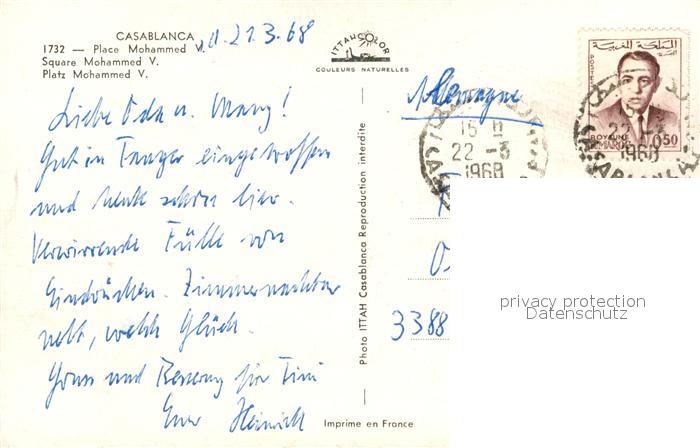 CASABLANCA
1732 — Place Mohammed V.
Square Mohammed V.
Platz Mohammed V.
d. 21.3.68
Liebe Oda u. Many!
Gut in Tanger eingetroffen
und heute schon hier.
Verwirrende Fülle von
Eindrücken. Zimmernachbar
nett, welch Glück.
Gruss und Besserung für Tini
Euer Heinrich
ITTAH COLOR
COULEURS NATURELLES
Photo ITTAH Casablanca Reproduction interdite
Imprime en France
Allemagne
3388
المملكة المغربية
POSTES
ROYAUME
DU MAROC
0,50
22 -3
1968
CASABLANCA
privacy protection
Datenschutz